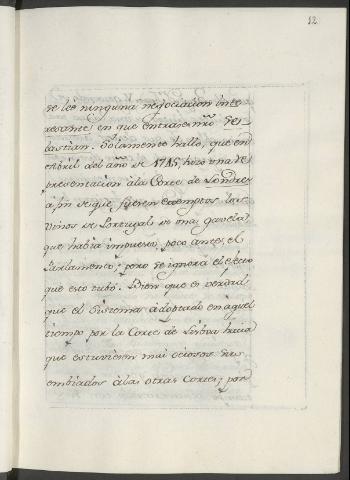 12
se lee ninguna negociacion inte
resante, en que entrase nr̃o Se-
bastian. Solamente hallo, que en
Abril del año de 1745, hizo una Re
presentacion à la Corte de Londres
à fin de que fuesen exemptos los
vinos de Portugal de una gavela
que habia impuesto poco antes el
Parlamento; pero se ignora el efecto
que esto tubo. Bien que es verdad
que el Sistema adoptado en aquel
tiempo por la Corte de Lisboa hacia
que estuviesen mas ociosos sus
embiados à las otras Cortes; por